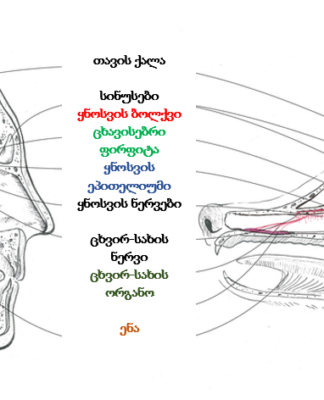 თავის ქალა
სინუსები
ყნოსვის ბოლქვი
ცხავისებრი
ფირფიტა
ყნოსვის
ეპითელიუმი
ყნოსვის ნერვები
ცხვირ-სახის
ნერვი
ცხვირ-სახის
ორგანო
ენა